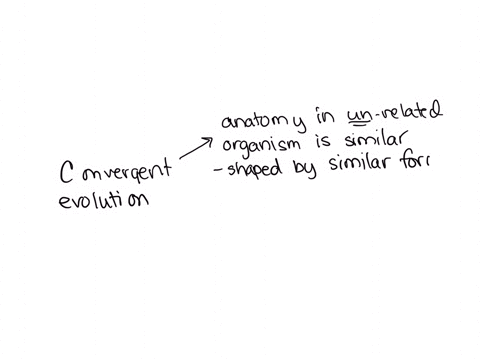 anatomy in un-related
organism is similar
-shaped by similar forc
Convergent
evolution